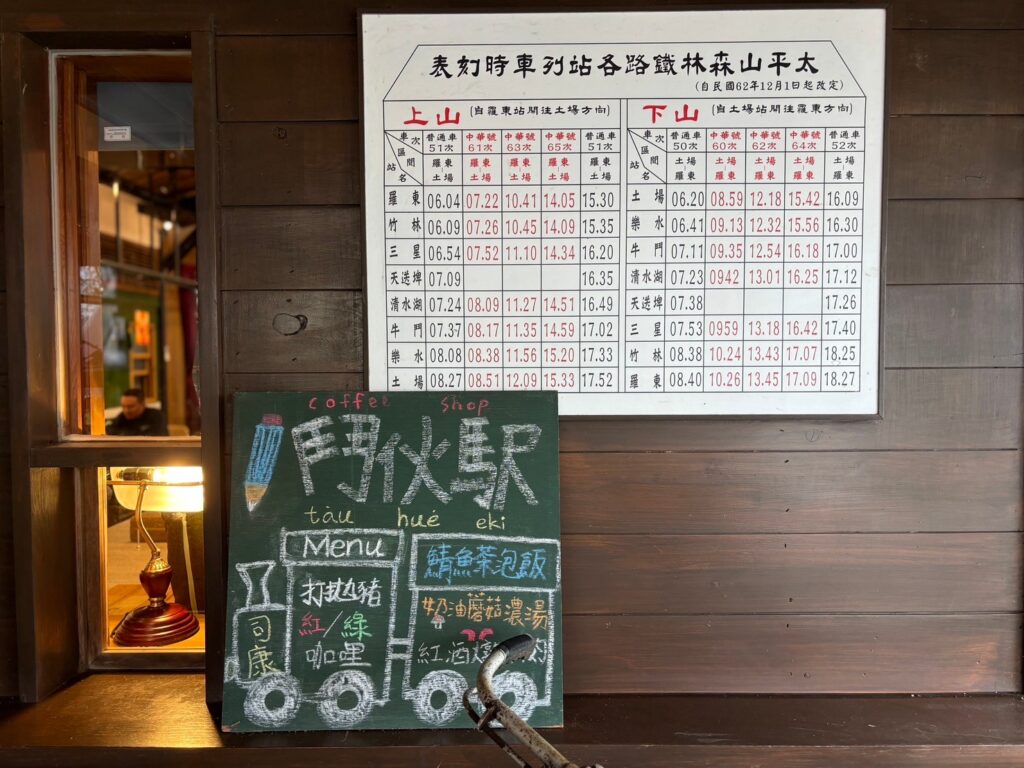 太平山森林鐵路各站列車時刻表
(自民國62年12月1日起改定)
上山 (自羅東站開往土場方向)
車次 區間 站名 普通車 中華號 中華號 中華號 普通車
51次 61次 63次 65次 51次
羅東｜土場 羅東｜土場 羅東｜土場 羅東｜土場 羅東｜土場
羅東 06.04 07.22 10.41 14.05 15.30
竹林 06.09 07.26 10.45 14.09 15.35
三星 06.54 07.52 11.10 14.34 16.20
天送埤 07.09 16.35
清水湖 07.24 08.09 11.27 14.51 16.49
牛門 07.37 08.17 11.35 14.59 17.02
樂水 08.08 08.38 11.56 15.20 17.33
土場 08.27 08.51 12.09 15.33 17.52
下山 (自土場站開往羅東方向)
車次 區間 站名 普通車 中華號 中華號 中華號 普通車
50次 60次 62次 64次 52次
土場｜羅東 土場｜羅東 土場｜羅東 土場｜羅東 土場｜羅東
土場 06.20 08.59 12.18 15.42 16.09
樂水 06.41 09.13 12.32 15.56 16.30
牛門 07.11 09.35 12.54 16.18 17.00
清水湖 07.23 0942 13.01 16.25 17.12
天送埤 07.38 17.26
三星 07.53 0959 13.18 16.42 17.40
竹林 08.38 10.24 13.43 17.07 18.25
羅東 08.40 10.26 13.45 17.09 18.27
coffee shop
鬥伙駅
tàu hué eki
Menu
打拋豬
紅/綠
咖哩
司康
鯖魚茶泡飯
奶油蘑菇濃湯
紅酒燉